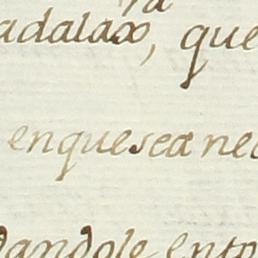 adalaxo, que
enqueseanec
dandole ento